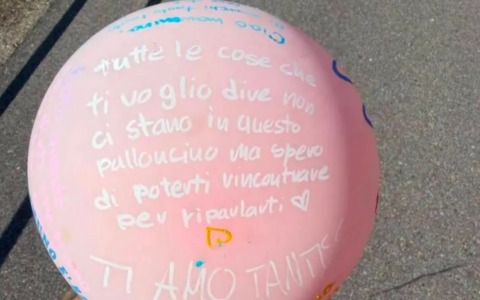 Ciao
tutte le cose che
ti voglio dire non
ci stano in questo
palloncino ma spero
di poterti rincontrare
per riparlarti ♡
TI AMO TANTI